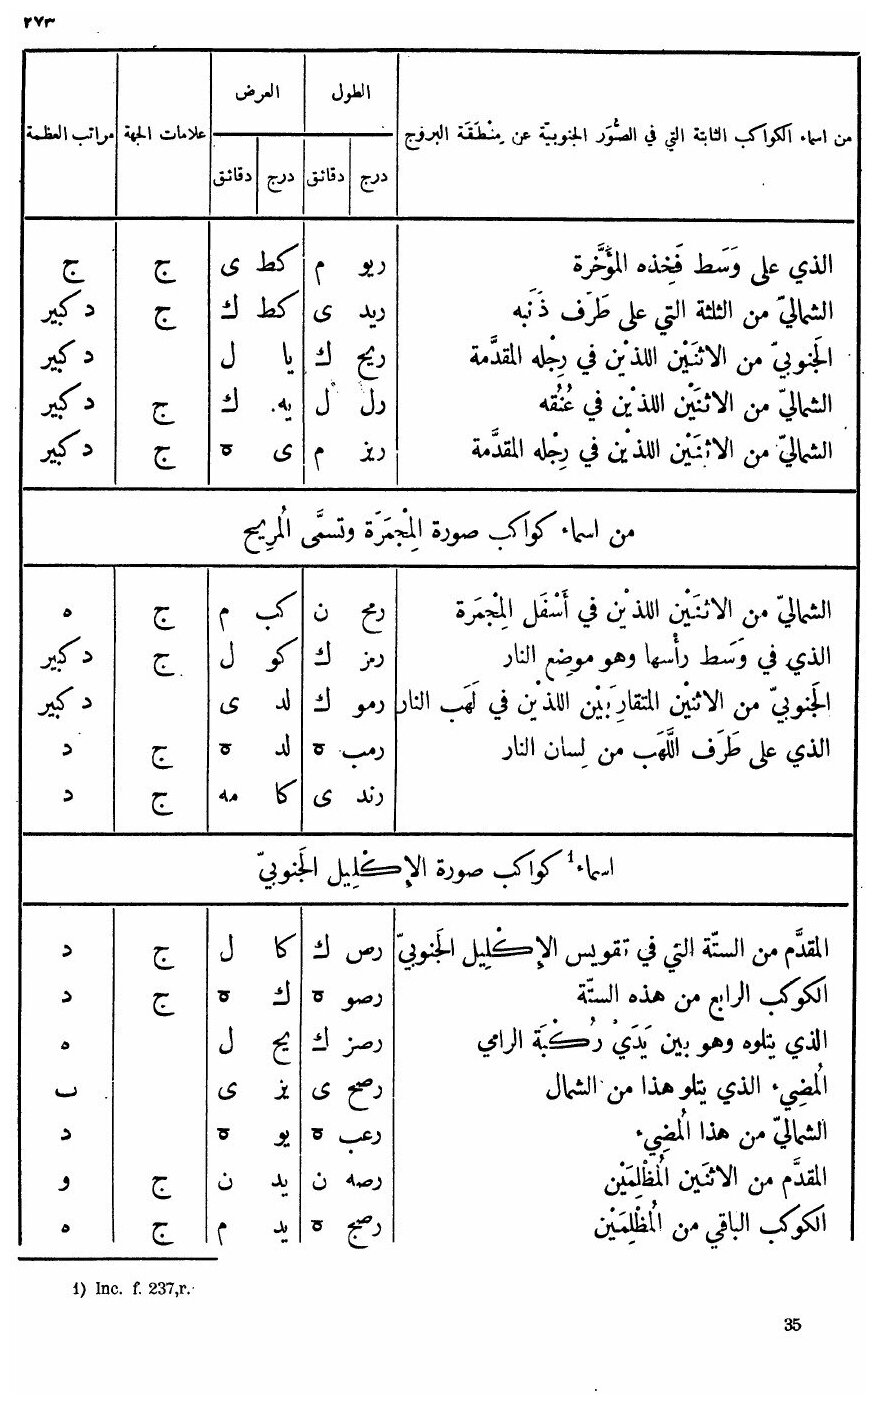 ٢٧٣
من اسماء الكواكب الثابتة التي في الصُّوَر الجنوبيّة عن مِنْطَقَة البروج الطول العرض علامات الجهة مراتب العظمة
درج دقائق درج دقائق
الذي على وَسَط فَخِذه المؤَخَّرة ريو م كط ى ج ج
الشماليّ من الثلثة التي على طَرَف ذَنَبه ريد ى كط ك ج د كبير
الجَنوبيّ من الاثنَيْن اللذيْن في رِجْله المقدَّمة ريح ك يا ل د كبير
الشماليّ من الاثنَيْن اللذيْن في عُنُقه رل ل يه ك ج د كبير
الشماليّ من الاثنَيْن اللذيْن في رِجْله المقدَّمة ريز م ى ه ج د كبير
من اسماء كواكب صورة المِجْمَرَة وتسمَّى المرِيح
الشماليّ من الاثنَيْن اللذيْن في أَسْفَل المِجْمَرَة رمح ن كب م ج ه
الذي في وَسَط رأْسها وهو موضِع النار رمز ك كو ل ج د كبير
الجَنوبيّ من الاثنيْن المتقارَبَيْن اللذيْن في لَهَب النار رمو ك لد ى د كبير
الذي على طَرَف اللَّهَب من لِسان النار رمب ه لد ه ج د
رند ى كا مه ج د
اسماء¹ كواكب صورة الإكْلِيل الجَنوبيّ
المقدَّم من الستّة التي في تقويس الإكْلِيل الجَنوبيّ رص ك كا ل ج د
الكوكب الرابع من هذه الستّة رصو ه ك ه ج د
الذي يتلوه وهو بين يَدَيْ رُكْبَة الرامي رصز ك يح ل ه
المُضِيء الذي يتلو هذا من الشمال رصح ى يز ى ب
الشماليّ من هذا المُضِيء رعب ه يو ه د
المقدَّم من الاثنَين المُظْلِمَيْن رصه ن يد ن ج و
الكوكب الباقي من المُظْلِمَيْن رصج ه يد م ج ه
1) Inc. f. 237,r.
35